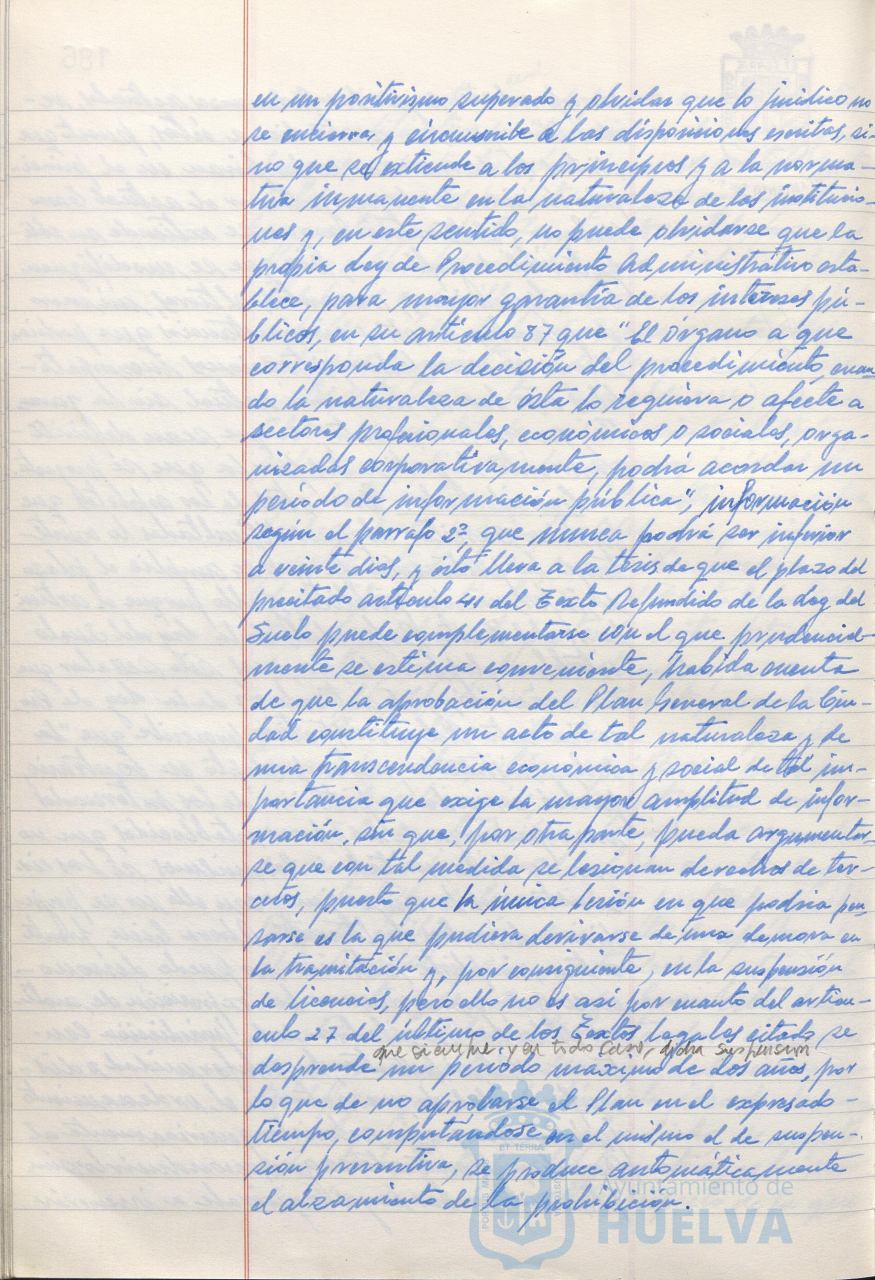 en un positivismo superado y olvidar que lo jurídico no
se encierra y circunscribe a las disposiciones escritas, si-
no que se extiende a los principios y a la norma-
tiva inmanente en la naturaleza de las institucio-
nes y, en este sentido, no puede olvidarse que la
propia Ley de Procedimiento Administrativo esta-
blece, para mayor garantía de los intereses pú-
blicos, en su artículo 87 que "El órgano a que
corresponda la decisión del procedimiento, cuan-
do la naturaleza de ésta lo requiera o afecte a
sectores profesionales, económicos o sociales, orga-
nizados corporativamente, podrá acordar un
período de información pública", información
según el parrafo 2º, que nunca podrá ser inferior
a veinte dias, y ésto lleva a la tesis de que el plazo del
precitado artículo 41 del Texto Refundido de la Ley del
Suelo puede complementarse con el que prudencial-
mente se estima conveniente, habida cuenta
de que la aprobación del Plan General de la Ciu-
dad constituye un acto de tal naturaleza y de
una transcendencia económica y social de tal im-
portancia que exige la mayor amplitud de infor-
mación, sin que, por otra parte, pueda argumentar-
se que con tal medida se lesionan derechos de ter-
ceros, puesto que la única lesión en que podría pen-
sarse es la que pudiera derivarse de una demora en
la tramitación y, por consiguiente, en la suspensión
de licencias, pero ello no es así por cuanto del artícu-
culo 27 del último de los Textos legales citado se
que siempre y en todo caso, dicha suspensión
desprende un período maximo de dos años, por
lo que de no aprobarse el Plan en el expresado-
tiempo, computándose en el mismo el de suspen-
sión preventiva, se produce automáticamente
el alzamiento de la prohibición.
Ayuntamiento de
HUELVA